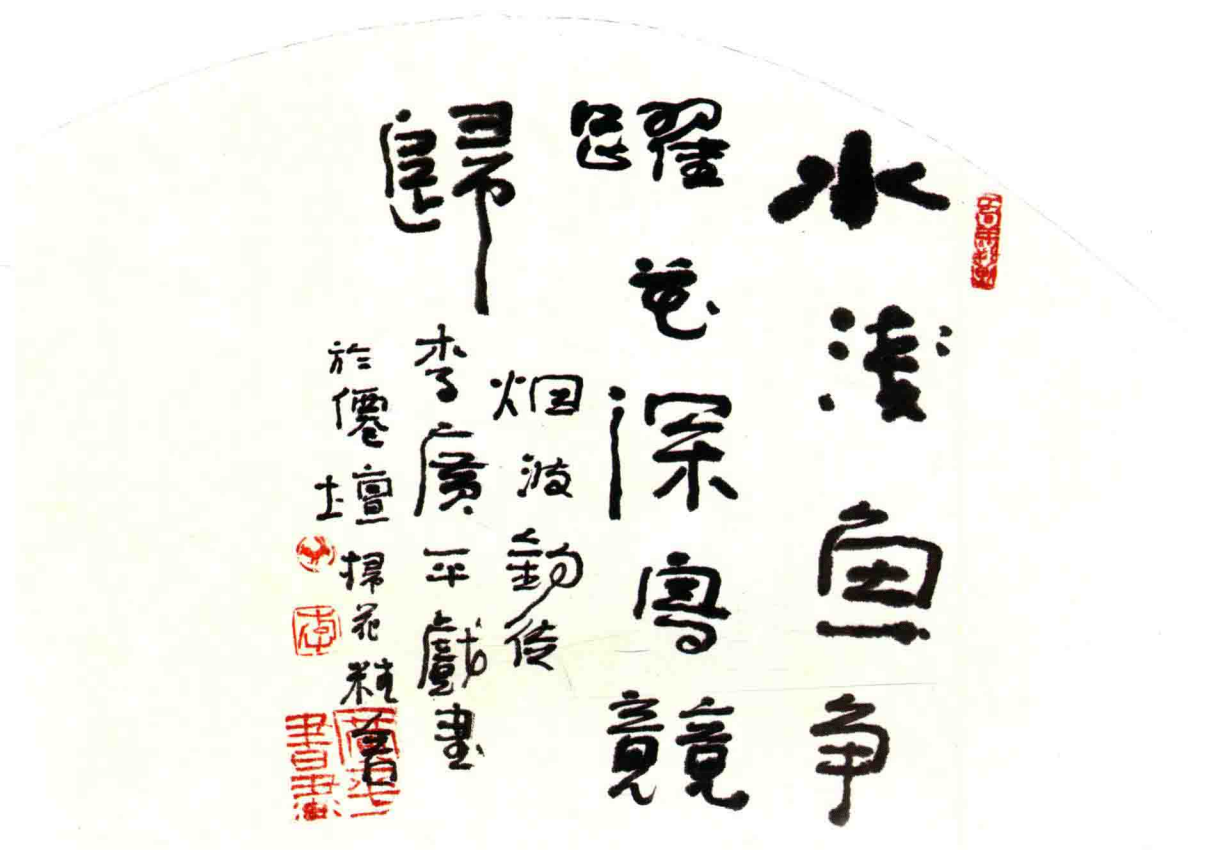 水淺魚争
躍花深鳥競
歸
烟波釣徒
李廣平戲書
於僊壇掃花精舍